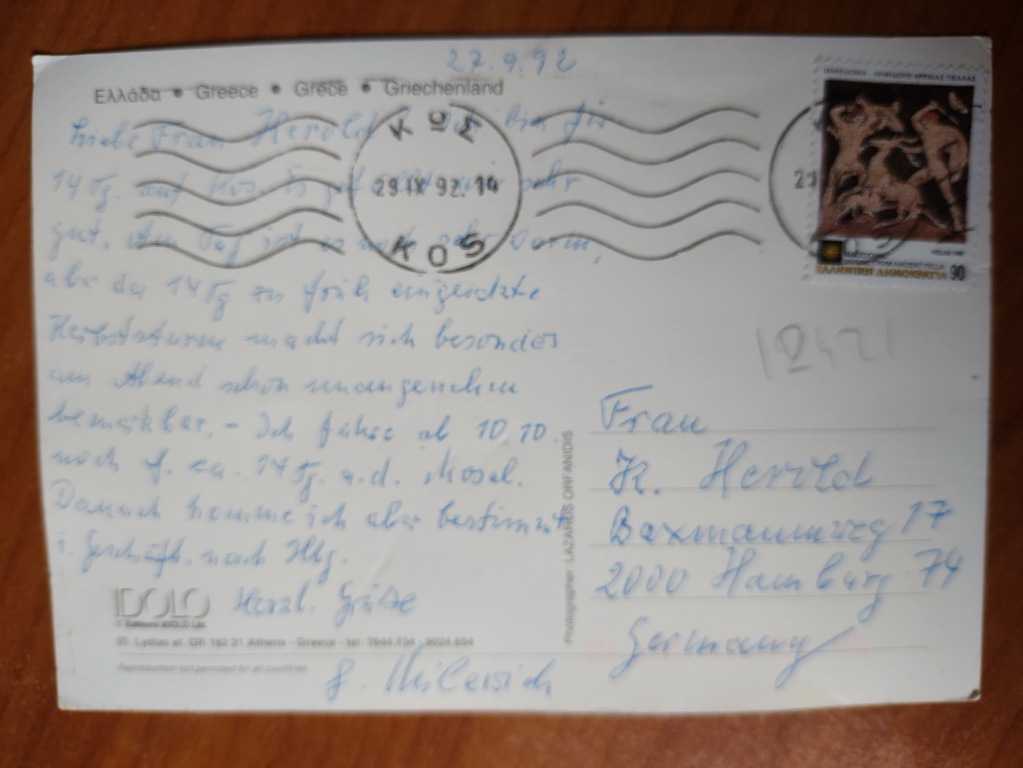 27.9.92
Ελλάδα • Greece • Grèce • Griechenland
Liebe Frau Herold! Ich bin für
14 Tg. auf Kos. Es geht mir sehr
gut. Am Tag ist es noch sehr warm,
aber der 14 Tg zu früh eingesetzte
Herbststurm macht sich besonders
am Abend schon unangenehm
bemerkbar. – Ich fahre ab 10.10.
noch f. ca. 14 Tg. a.d. Mosel.
Danach komme ich aber bestimmt
i. Geschäft nach Hbg.
Herzl. Grüße
ΚΩΣ
29 IX 92. 14
KOS
29
HELLAS
90
ΕΛΛΗΝΙΚΗ ΔΗΜΟΚΡΑΤΙΑ
12421
Frau
K. Herold
Baxmannweg 17
2000 Hamburg 74
Germany
Photographer LAZAROS ORFANIDIS
IDOLO
© Editions IDOLO Ltd
35, Lydias st. GR 162 31 Athens - Greece - tel. 7644.734 - 9024.954
Reproduction not permitted for all countries